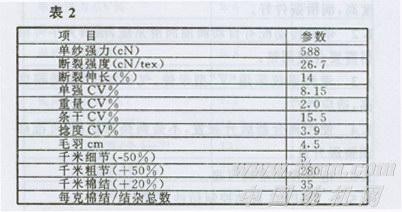 表 2
项 目 参数
单纱强力(cN) 588
断裂强度(cN/tex) 26.7
断裂伸长(%) 14
单强 CV% 8.15
重量 CV% 2.0
条干 CV% 15.5
捻度 CV% 3.9
毛羽 cm 4.5
千米细节(-50%) 5
千米粗节(+50%) 280
千米棉结(+20%) 35
每克棉结/结杂总数